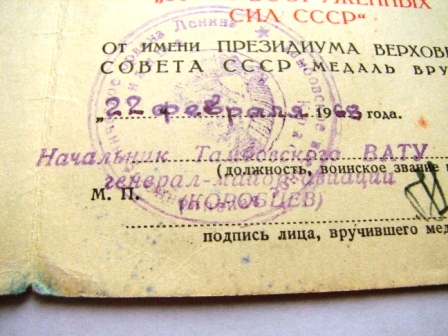 ВООРУЖЕННЫХ
СИЛ СССР"
ОТ ИМЕНИ ПРЕЗИДИУМА ВЕРХОВ
СОВЕТА СССР МЕДАЛЬ ВРУ
„22 февраля 1968 года.
Начальник Тамбовского ВАТУ
(должность, воинское звание
генерал-майор авиации
М. П. (КОРОБЦЕВ)
подпись лица, вручившего мед
Ленина